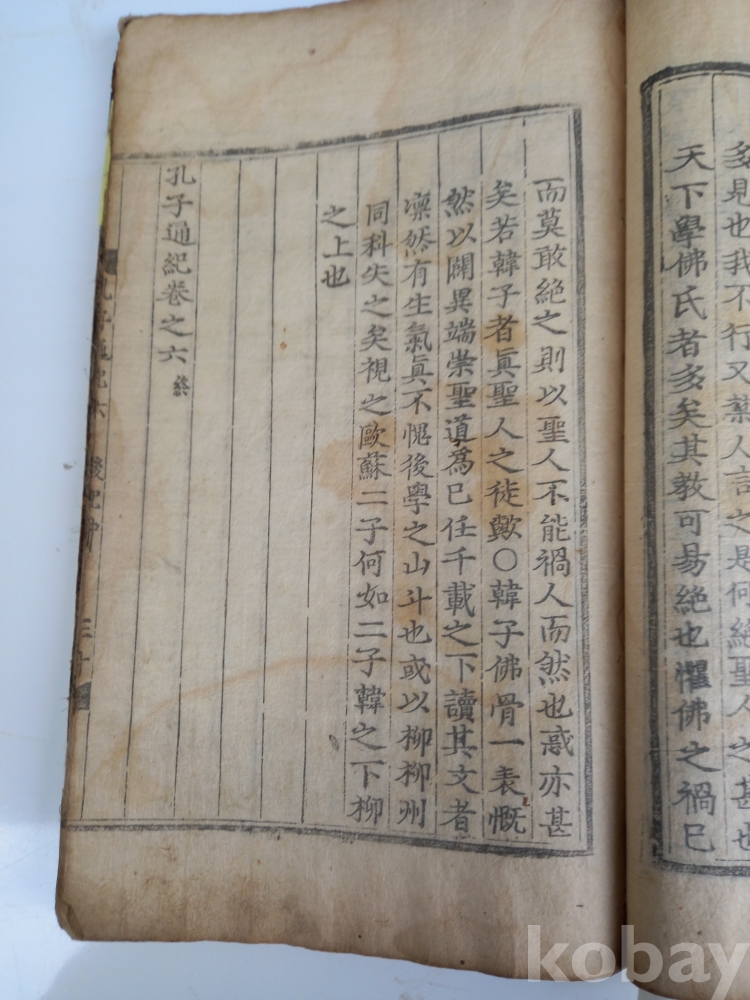 多見也我不行又
人言之是何絶聖人之甚也
天下學佛氏者多矣其教可易絶也懼佛之禍已
而莫敢絶之則以聖人不能禍人而然也惑亦甚
矣若韓子者眞聖人之徒歟○韓子佛骨一表慨
然以闢異端崇聖道爲已任千載之下讀其文者
凜然有生氣眞不愧後學之山斗也或以柳柳州
同科失之矣視之歐蘇二子何如二子韓之下柳
之上也
孔子通紀卷之六 終
孔子通紀六 後紀
三十
kobay